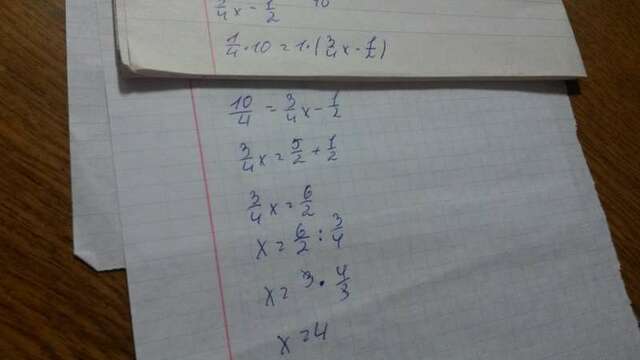 3/4 x - 1/2 10
1/4 · 10 = 1 · (3/4 x - 1/2)
10/4 = 3/4 x - 1/2
3/4 x = 5/2 + 1/2
3/4 x = 6/2
x = 6/2 : 3/4
x = 3 · 4/3
x = 4